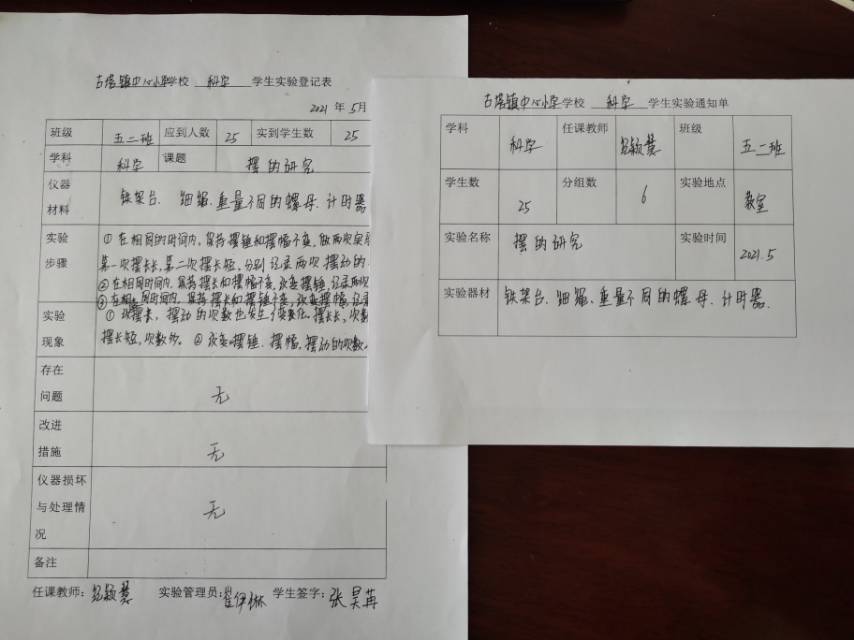 古塔镇中心小学学校 科学 学生实验登记表
2021 年 5月
班级 五二班 应到人数 25 实到学生数 25
学科 科学 课题 摆的研究
仪器材料 铁架台、细绳、重量不同的螺母、计时器
实验步骤
①在相同的时间内,保持摆锤和摆幅不变,做两次实验
第一次摆长长,第二次摆长短,分别记录两次摆动的
②在相同时间内,保持摆长和摆幅不变,改变摆锤,记录两次
③在相同时间内,保持摆长和摆锤不变,改变摆幅,记录
实验现象
①改摆长,摆动的次数也发生了变化。摆长长,次数
摆长短,次数多。②改变摆锤、摆幅,摆动的次数
存在问题 无
改进措施 无
仪器损坏与处理情况 无
备注
任课教师: 实验管理员: 学生签字:张昊苒
古塔镇中心小学学校 科学 学生实验通知单
学科 科学 任课教师 班级 五二班
学生数 25 分组数 6 实验地点 教室
实验名称 摆的研究 实验时间 2021.5
实验器材 铁架台、细绳、重量不同的螺母、计时器.